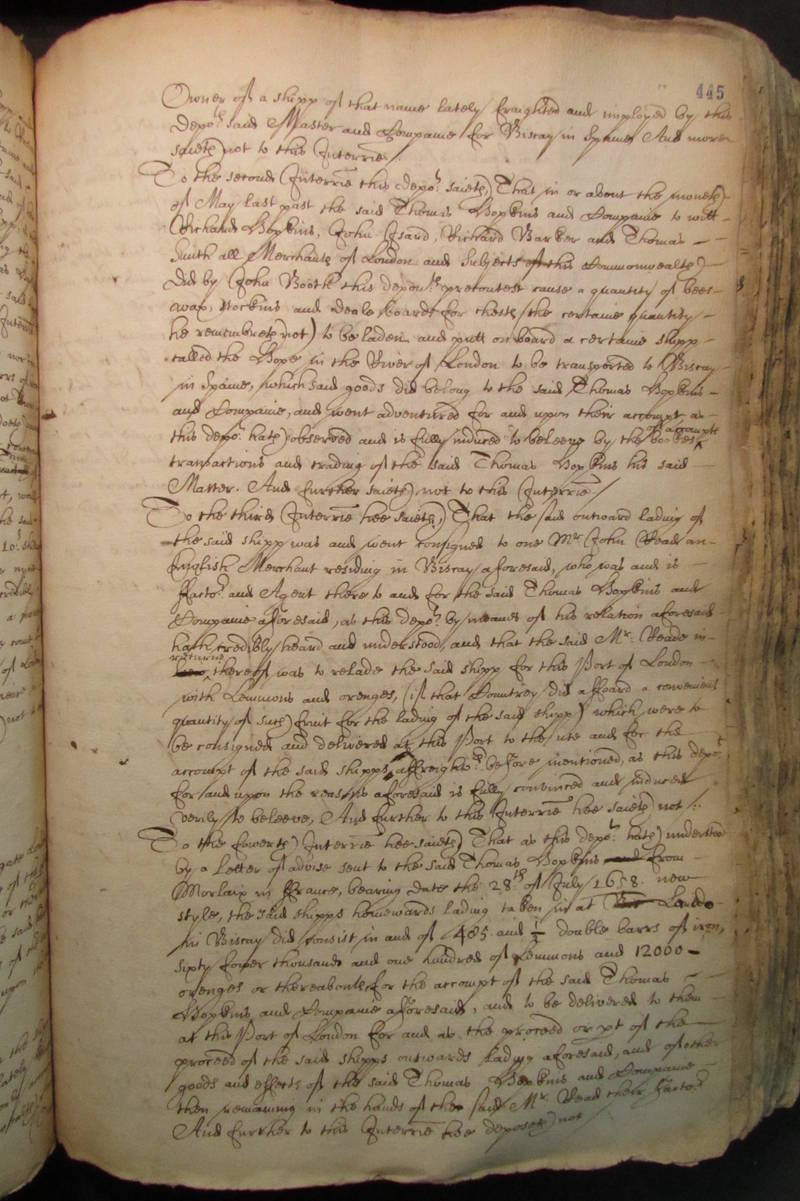 445
Owner of a shipp of that name lately fraighted and imployed by this
depo:ts said Master and Companie for Biscay in Spaine And more
saieth not to this Interrie./
To the second Interrie this depo:t saieth, That in or about the moneth
of May last past the said Thomas Hopkins and Companie to witt
Richard Hopkins, John Isard, Richard Barker and Thomas
Smith all Merchants of London and Subjects of this Commonwealth
Did by John Booth this depon:ts precontest cause a quantity of bees-
wax, stockins and deale boards for chests (the certame quantity
he remembreth not) to be laden and putt on board a certaine shipp
called the Hope in the River of London to be transported to Biscay
in Spaine, which said goods did belong to the said Thomas Hopkins
and Companie, and went adventured for and upon their accompt as
this depo:t hath observed and is fully induced to beleeve by the bookes of accompts
transactions and trading of the said Thomas Hopkins his said
Master. And further saieth not to this Interrie./
To the third Interrie hee saieth, That the said outward lading of
the said shipp was and went consigned to one Mr John Read an
English Merchant residing in Biscay aforesaid, who was and is
Facto:r and Agent there to and for the said Thomas Hopkins and
Companie aforesaid, as this depo:t by meanes of his relation aforesaid
hath credibly heard and understood, and that the said Mr. Reade in
returne thereof was to relade the said shipp for this Port of London
with Lemmons and orenges, (if that Countrey did affoard a convenient
quantity of such fruit for the lading of the said shipp) which were to
be consigned and delivered at this Port to the use and for the
accompt of the said shipps affreighto:rs before mentioned, as this depo:t
for and upon the reasons aforesaid is fully convinced and induced
verily to beleeve, And further to this Interrie hee saieth not /:
To the fowerth Interrie hee saieth That as this depo:t hath understood
by a Letter of advise sent to the said Thomas Hopkins from
Morlaix in ffrance, bearing date the 28th of July 1658. new
style, the said shipps homewards lading taken in at
in Biscay did consist in and of 485 and ½ double barrs of iron,
sixty fower thousand and one hundred of Lemmons and 12000
orenges or thereabouts for the accompt of the said Thomas
Hopkins and Companie aforesaid, and to be delivered to them
at this Port of London for and as the proceed or pt of the
proceed of the said shipps outwards lading aforesaid, and of other
goods and effects of the said Thomas Hopkins and Companie
then remaining in the hands of the said Mr. Read their Facto:r
And further to this Interrie hee deposeth not /